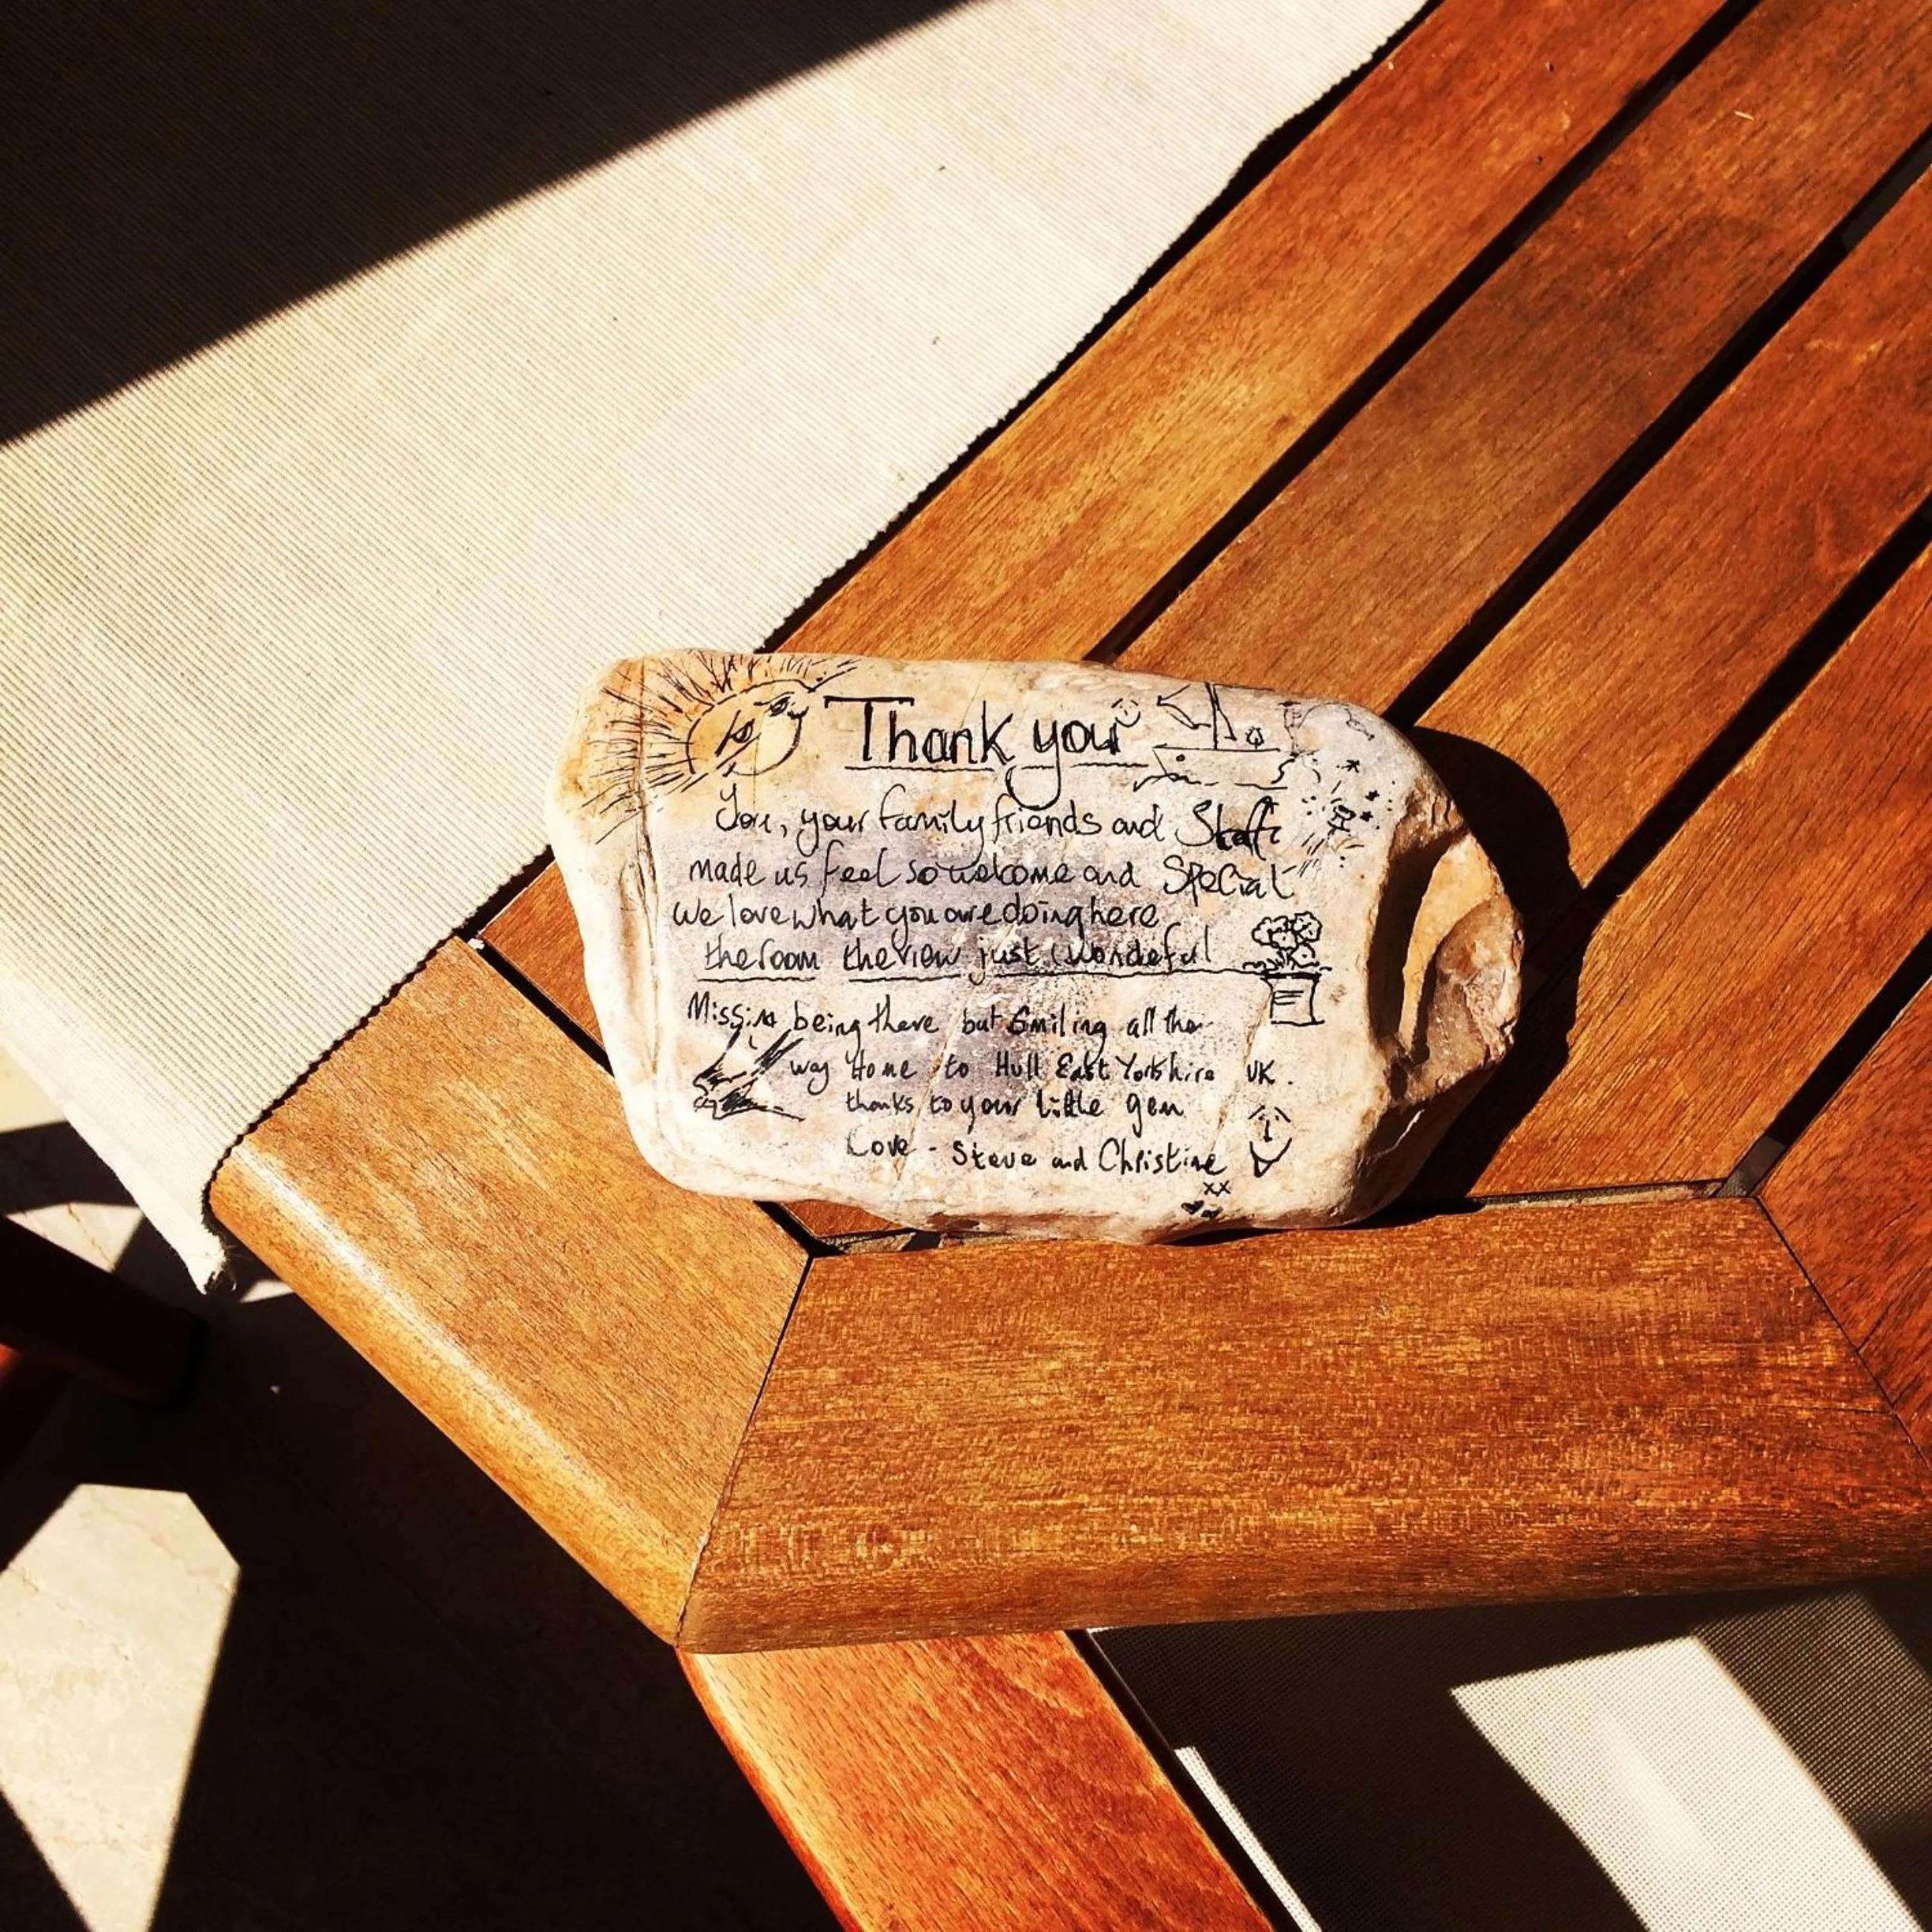 Thank you
You, your family friends and Staff
made us feel so welcome and Special
we love what you are doing here
the room the view just wonderful
Missing being there but Smiling all the
way Home to Hull East Yorkshire UK.
thanks to your little gem
Love - Steve and Christine
xx